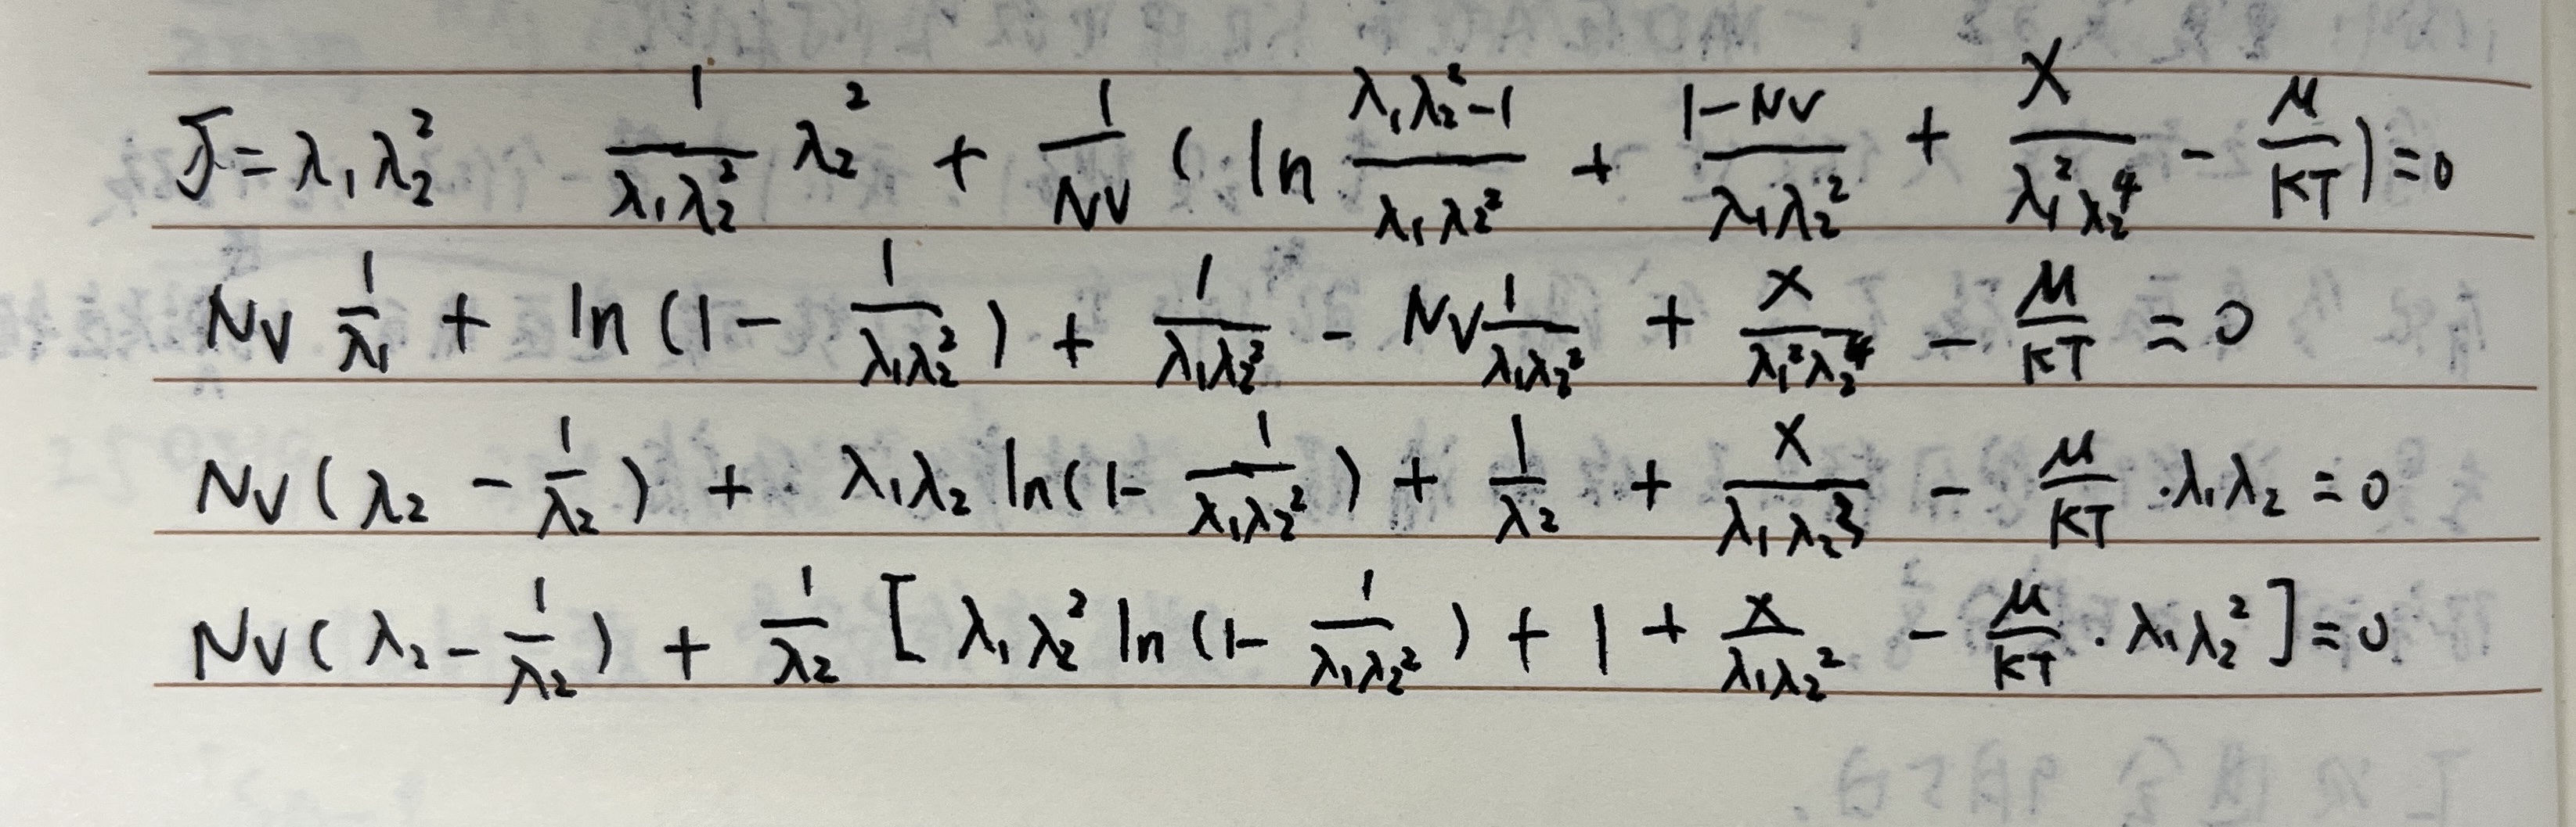 J = λ₁λ₂²   \frac{1}{λ₁λ₂²} λ₂² + \frac{1}{NV} ( ln \frac{λ₁λ₂²-1}{λ₁λ₂²} + \frac{1-NV}{λ₁λ₂²} + \frac{χ}{λ₁²λ₂⁴} - \frac{μ}{KT} ) = 0
NV \frac{1}{λ₁} + ln (1 - \frac{1}{λ₁λ₂²}) + \frac{1}{λ₁λ₂²} - NV \frac{1}{λ₁λ₂²} + \frac{χ}{λ₁²λ₂⁴} - \frac{μ}{KT} = 0
NV (λ₂ - \frac{1}{λ₂}) + λ₁λ₂ ln(1 - \frac{1}{λ₁λ₂²}) + \frac{1}{λ₂} + \frac{χ}{λ₁λ₂³} - \frac{μ}{KT} · λ₁λ₂ = 0
NV (λ₂ - \frac{1}{λ₂}) + \frac{1}{λ₂} [ λ₁λ₂² ln (1 - \frac{1}{λ₁λ₂²}) + 1 + \frac{χ}{λ₁λ₂²} - \frac{μ}{KT} · λ₁λ₂² ] = 0